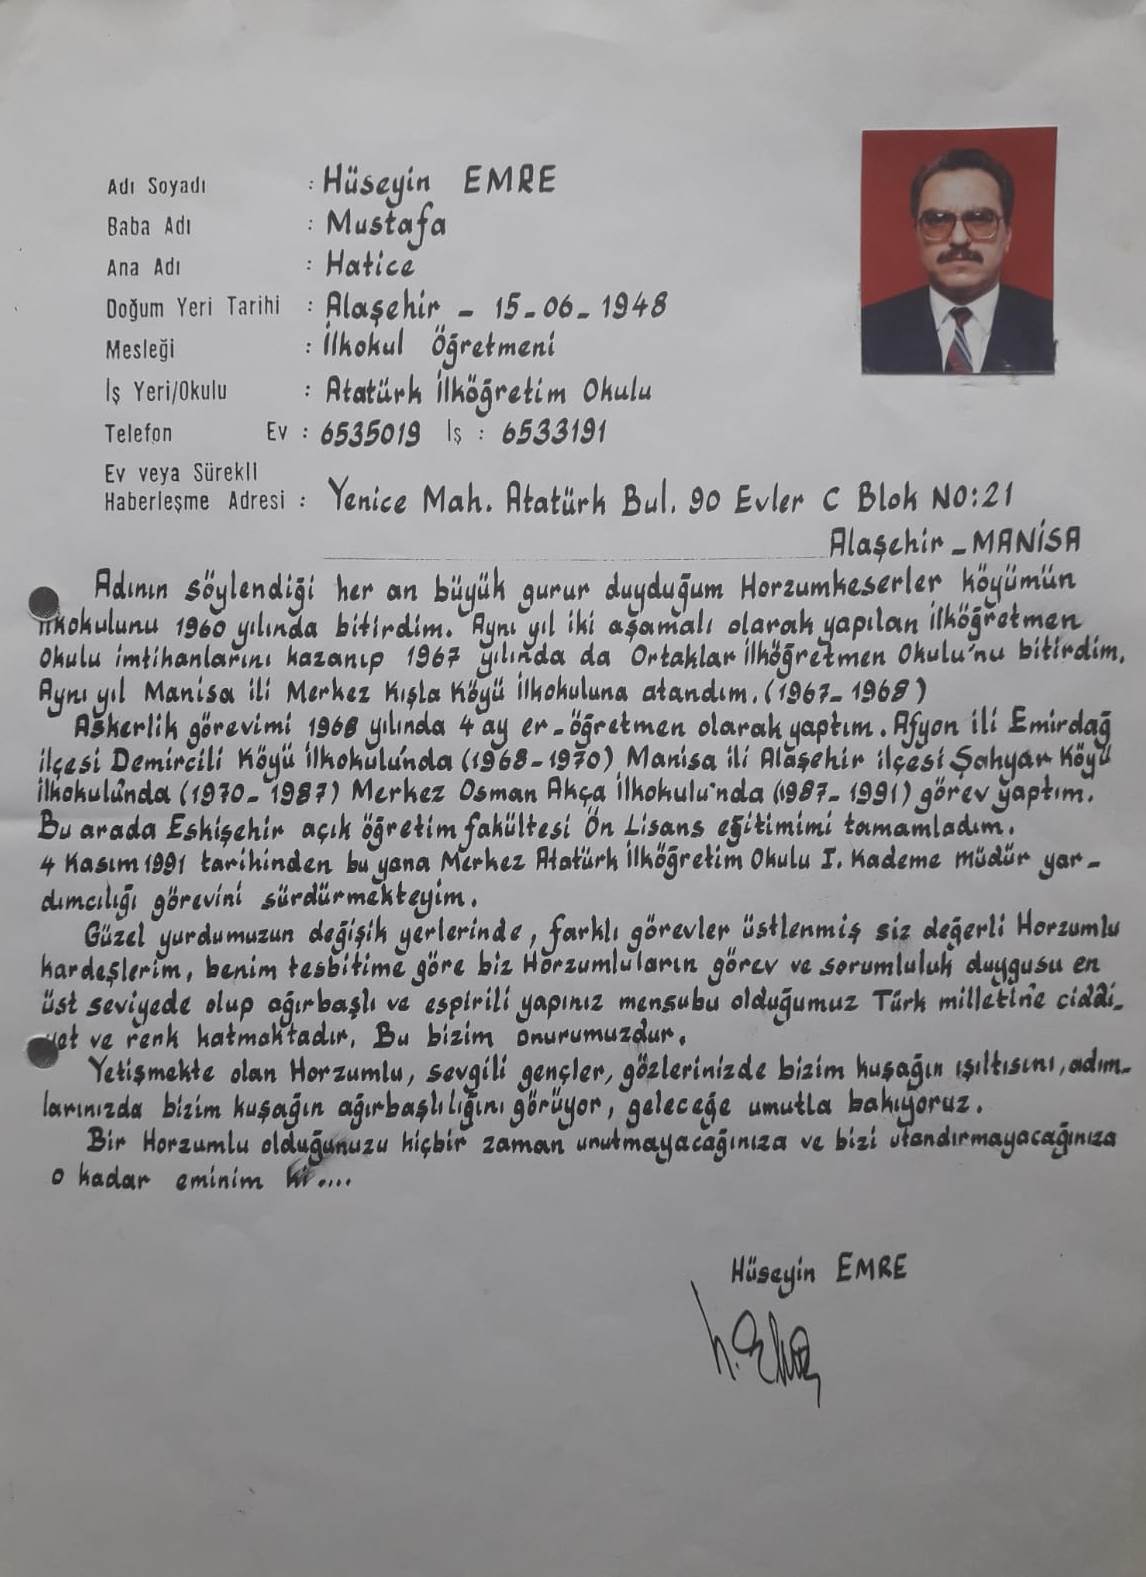 Adı Soyadı : Hüseyin EMRE
Baba Adı : Mustafa
Ana Adı : Hatice
Doğum Yeri Tarihi : Alaşehir - 15-06-1948
Mesleği : İlkokul Öğretmeni
İş Yeri/Okulu : Atatürk İlköğretim Okulu
Telefon Ev : 6535019 İş : 6533191
Ev veya Sürekli
Haberleşme Adresi : Yenice Mah. Atatürk Bul. 90 Evler C Blok NO:21
Alaşehir - MANİSA
Adının söylendiği her an büyük gurur duyduğum Horzumkeserler köyümün
ilkokulunu 1960 yılında bitirdim. Aynı yıl iki aşamalı olarak yapılan ilköğretmen
Okulu imtihanlarını kazanıp 1967 yılında da Ortaklar İlköğretmen Okulu'nu bitirdim.
Aynı yıl Manisa ili Merkez Kışla Köyü İlkokuluna atandım. (1967-1968)
Askerlik görevimi 1968 yılında 4 ay er-öğretmen olarak yaptım. Afyon ili Emirdağ
ilçesi Demircili Köyü İlkokulu'nda (1968-1970) Manisa ili Alaşehir ilçesi Şahyar Köyü
İlkokulu'nda (1970-1987) Merkez Osman Akça İlkokulu'nda (1987-1991) görev yaptım.
Bu arada Eskişehir açık öğretim fakültesi Ön Lisans eğitimimi tamamladım.
4 Kasım 1991 tarihinden bu yana Merkez Atatürk İlköğretim Okulu I. Kademe müdür yar-
dımcılığı görevini sürdürmekteyim.
Güzel yurdumuzun değişik yerlerinde, farklı görevler üstlenmiş siz değerli Horzumlu
kardeşlerim, benim tesbitime göre biz Horzumluların görev ve sorumluluk duygusu en
üst seviyede olup ağırbaşlı ve espirili yapınız mensubu olduğumuz Türk milletine ciddi-
yet ve renk katmaktadır. Bu bizim onurumuzdur.
Yetişmekte olan Horzumlu, sevgili gençler, gözlerinizde bizim kuşağın ışıltısını, adım-
larınızda bizim kuşağın ağırbaşlılığını görüyor, geleceğe umutla bakıyoruz.
Bir Horzumlu olduğunuzu hiçbir zaman unutmayacağınıza ve bizi utandırmayacağınıza
o kadar eminim ki....
Hüseyin EMRE